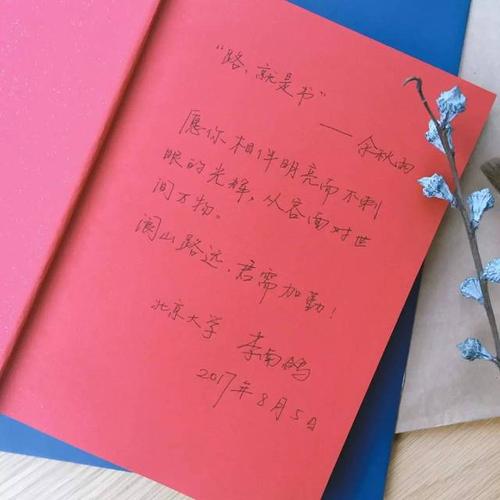 “路，就是书”
——余秋雨
愿你相伴明亮而不刺
眼的光辉，从容面对世
间万物。
阆山路远，君需加勤！
北京大学 李南鸽
2017年8月5日